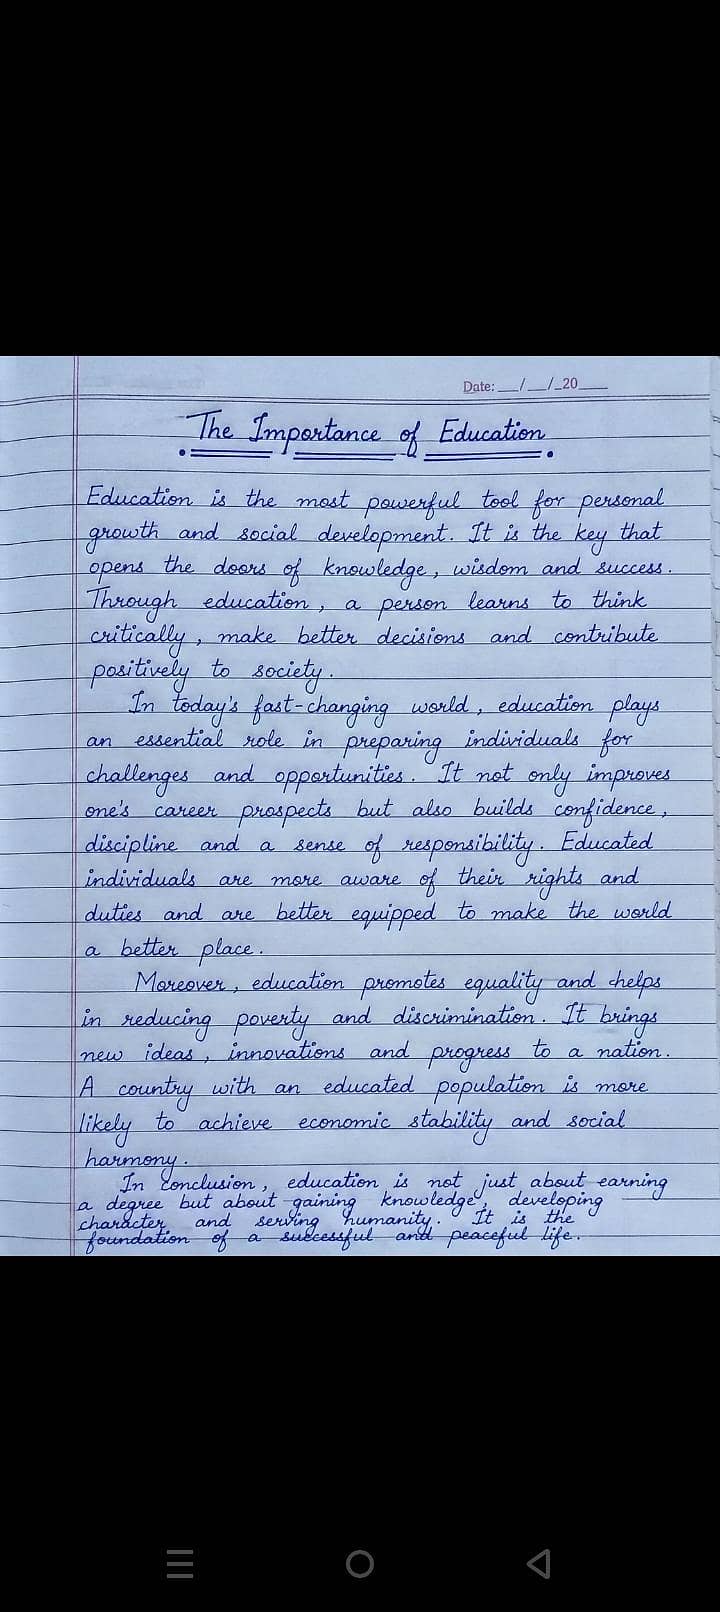 Date: __/__/_20__
The Importance of Education
Education is the most powerful tool for personal
growth and social development. It is the key that
opens the doors of knowledge, wisdom and success.
Through education, a person learns to think
critically, make better decisions and contribute
positively to society.
In today's fast-changing world, education plays
an essential role in preparing individuals for
challenges and opportunities. It not only improves
one's career prospects but also builds confidence,
discipline and a sense of responsibility. Educated
individuals are more aware of their rights and
duties and are better equipped to make the world
a better place.
Moreover, education promotes equality and helps
in reducing poverty and discrimination. It brings
new ideas, innovations and progress to a nation.
A country with an educated population is more
likely to achieve economic stability and social
harmony.
In Conclusion, education is not just about earning
a degree but about gaining knowledge, developing
character and serving humanity. It is the
foundation of a successful and peaceful life.